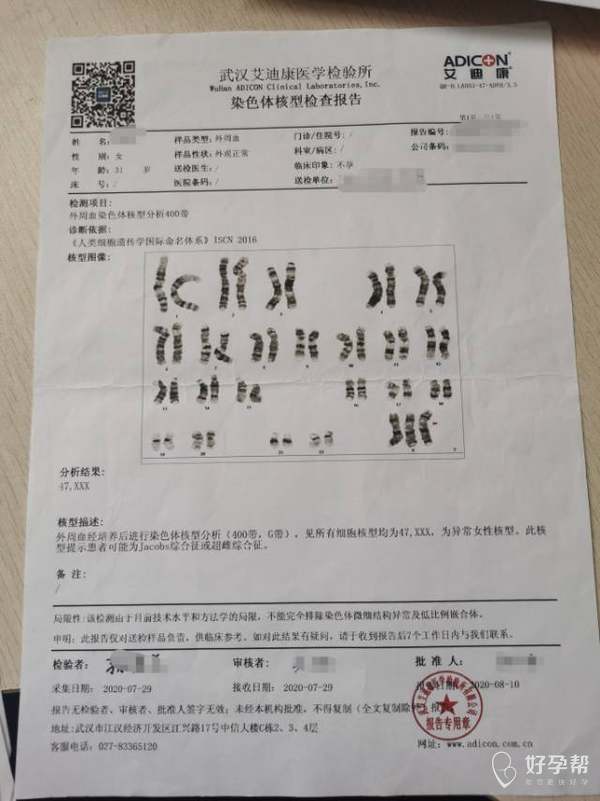 ADICON
艾迪康
武汉艾迪康医学检验所
WuHan ADICON Clinical Laboratories,Inc.
染色体核型检查报告
姓 名: 样品类型:外周血 门诊/住院号: / 报告编号:
性 别:女 样品性状:外观正常 科室/病区: / 公司条码:
年 龄:31 岁 送检医生: / 临床印象:不孕
床 号: / 医院条码: / 送检单位:
检测项目:
外周血染色体核型分析400带
诊断依据:
《人类细胞遗传学国际命名体系》ISCN 2016
核型图像:
分析结果:
47,XXX
核型描述:
外周血经培养后进行染色体核型分析(400带,G带),见所有细胞核型均为47,XXX,为异常女性核型。此核
型提示患者可能为Jacobs综合征或超雌综合征。
备 注:
/
局限性:该检测由于目前技术水平和方法学的局限,不能完全排除染色体微细结构异常及低比例嵌合体。
申明:此报告仅对送检样品负责,供临床参考。如对此结果有疑问,请于收到报告后7个工作日内与我们联系。
检验者: 审核者: 批 准 人:
采集日期: 2020-07-29 接收日期: 2020-07-29 2020-08-10
报告无检验者、审核者、批准人签字无效;未经本机构批准,不得复制(全文复制除外)报
报告专用章
地址:武汉市江汉经济开发区江兴路17号中信人楼C栋2、3、4层
客服电话:027-83365120 网址:www.adicon.com.cn
好孕帮